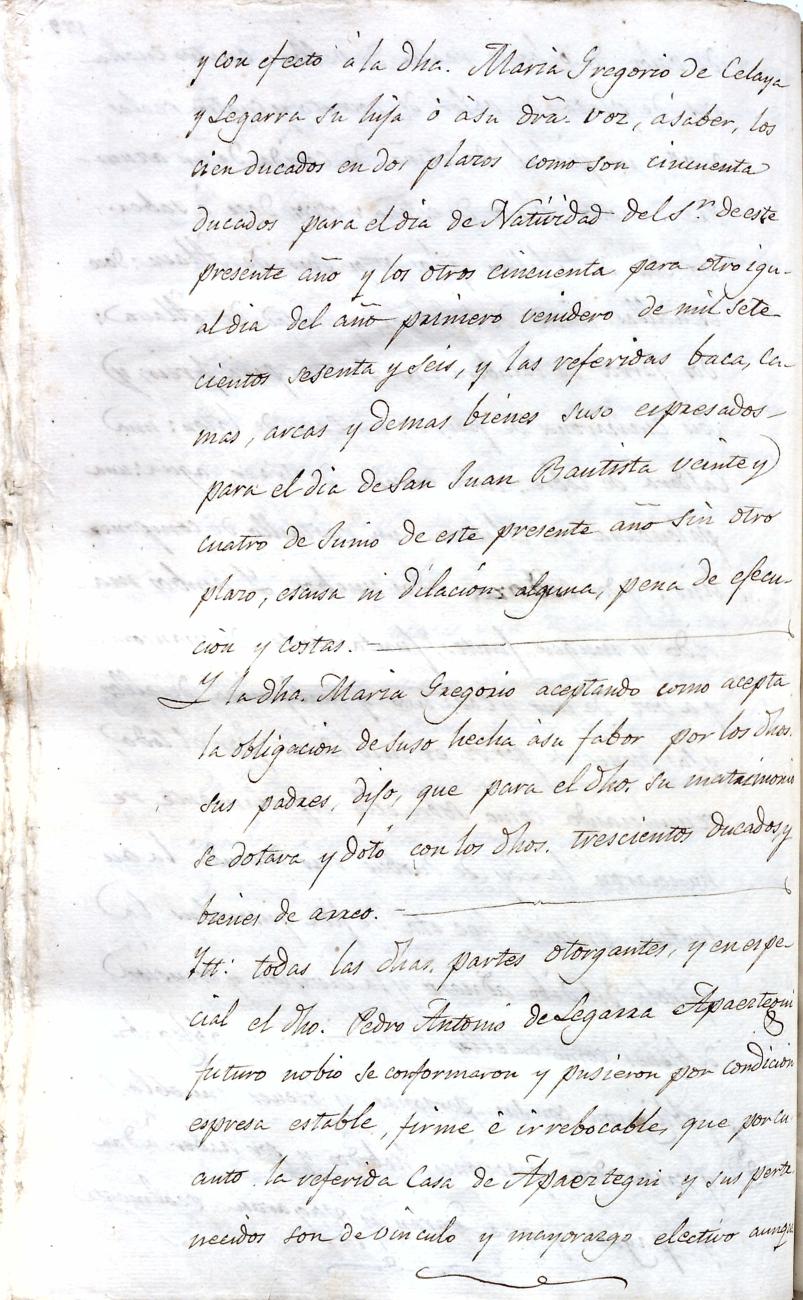 y con efecto à la dha. Maria Gregorio de Celaya
y Legarra su hija ò àsu drã. voz, àsaber, los
cien ducados en dos plazos como son cincuenta
ducados para el dia de Natividad del S.r de este
presente año y los otros cincuenta para otro igu-
al dia del año primero venidero de mil sete
cientos sesenta y seis, y las referidas baca, ca-
mas, arcas y demas bienes suso espresados-
para el dia de San Juan Bautista veinte y
cuatro de Junio de este presente año sin otro
plazo, escusa ni dilacion alguna, pena de ejecu-
cion y costas.
Y la dha. Maria Gregorio aceptando como acepta
la obligacion de suso hecha àsu fabor por los dhos.
sus padres, dijo, que para el dho. su matrimonio
se dotava y dotó con los dhos. trescientos ducados y
bienes de arreo.
Itt: todas las dhas. partes otorgantes, y en espe-
cial el dho. Pedro Antonio de Legarra Apaeztegui
futuro nobio se conformaron y pusieron por condicion
espresa estable, firme è irrebocable, que por cu-
anto la referida Casa de Apaeztegui y sus perte
necidos son de vinculo y mayorazgo electivo aunque